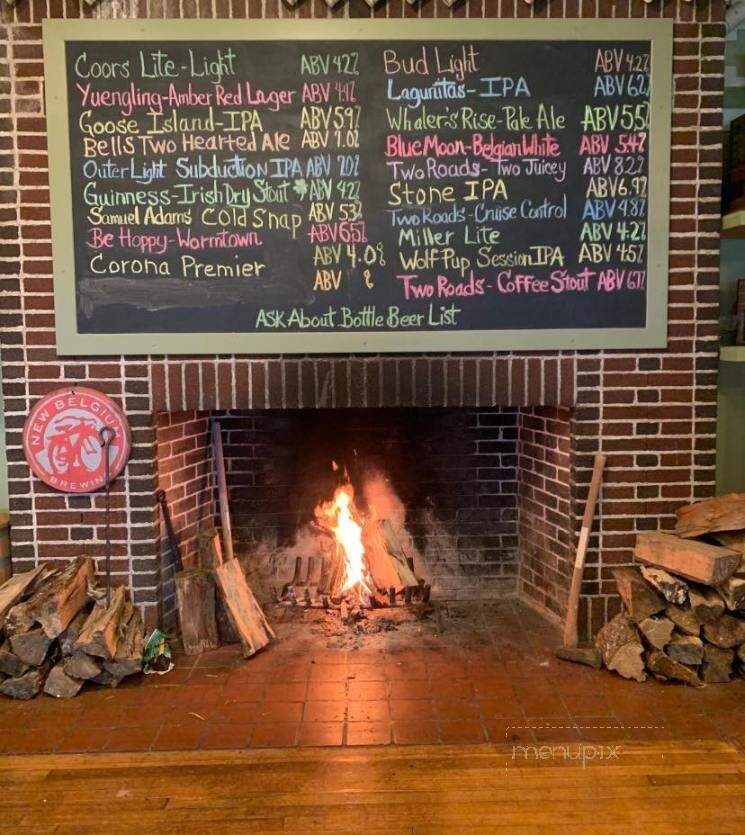 Coors Lite-Light ABV 4.2%
Yuengling-Amber Red Lager ABV 4.4%
Goose Island-IPA ABV 5.9%
Bells Two Hearted Ale ABV 7.0%
Outer Light Subduction IPA ABV 7.0%
Guinness-Irish Dry Stout ABV 4.2%
Samuel Adams Cold Snap ABV 5.3%
Be Hoppy-Wormtown ABV 6.5%
Corona Premier ABV 4.0%
ABV %
Bud Light ABV 4.2%
Lagunitas-IPA ABV 6.2%
Whaler's Rise-Pale Ale ABV 5.5%
Blue Moon-Belgian White ABV 5.4%
Two Roads-Two Juicey ABV 8.2%
Stone IPA ABV 6.9%
Two Roads-Cruise Control ABV 4.8%
Miller Lite ABV 4.2%
Wolf Pup Session IPA ABV 4.5%
Two Roads-Coffee Stout ABV 6.7%
ASK About Bottle Beer List
NEW BELGIUM
BREWING
menupix